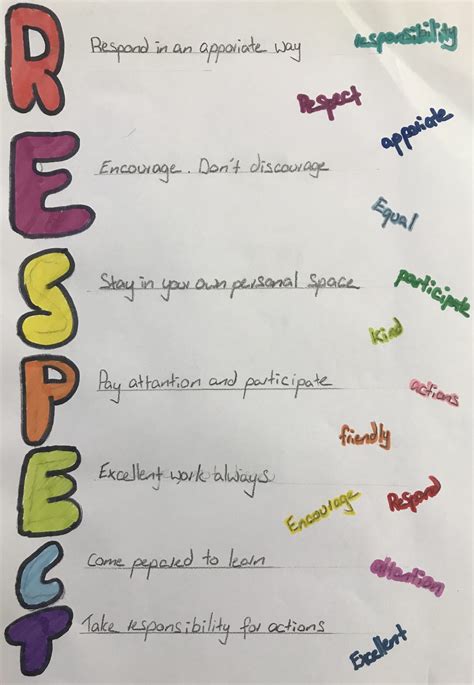 R Respond in an apporiate way responsibility
Respect
apporiate
E Encourage. Don't discourage
Equal
S Stay in your own personal space participate
Kind
P Pay attantion and participate actions
friendly
E Excellent work always
Encourage Respond
C Come pepared to learn attantion
T Take responsibility for actions
Excellent